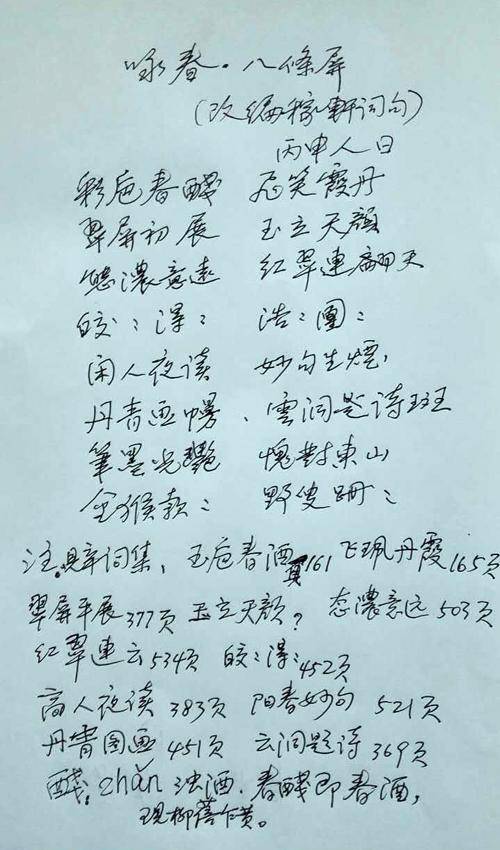 咏春·八條屏
(改编稼軒词句)
丙申人日
彩卮春醆 飛笑霞丹
翠屏初展 玉立天顔
態濃意遠 红翠連翩天
皎:澤: 浩:團:
闲人夜读 妙句生煙,
丹青画幛、雲洞题诗斑
筆墨光艷 愧對東山
金猴款: 野叟跚:
注。辛词集,玉卮春酒頁161 飞珮丹霞165页
翠屏平展377页 玉立天颜? 态濃意远503页
红翠連云534页 皎:澤:452页
高人夜读383页 阳春妙句 521页
丹青图画451页 云洞题诗369页
醆,zhǎn浊酒.春醆即春酒,
现柳蓓乍黄。